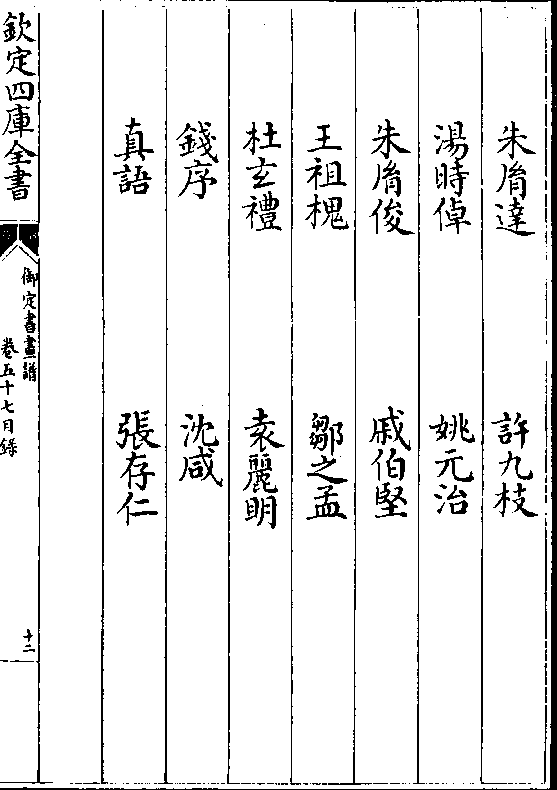 朱胤達　許九枝
湯時倬　姚元治
朱胤俊　戚伯堅
王祖槐　鄒之孟
杜玄禮　袁麗明
錢序　沈咸
真語　張存仁
欽定四庫全書
御定書畫譜
卷五十七目錄
十二